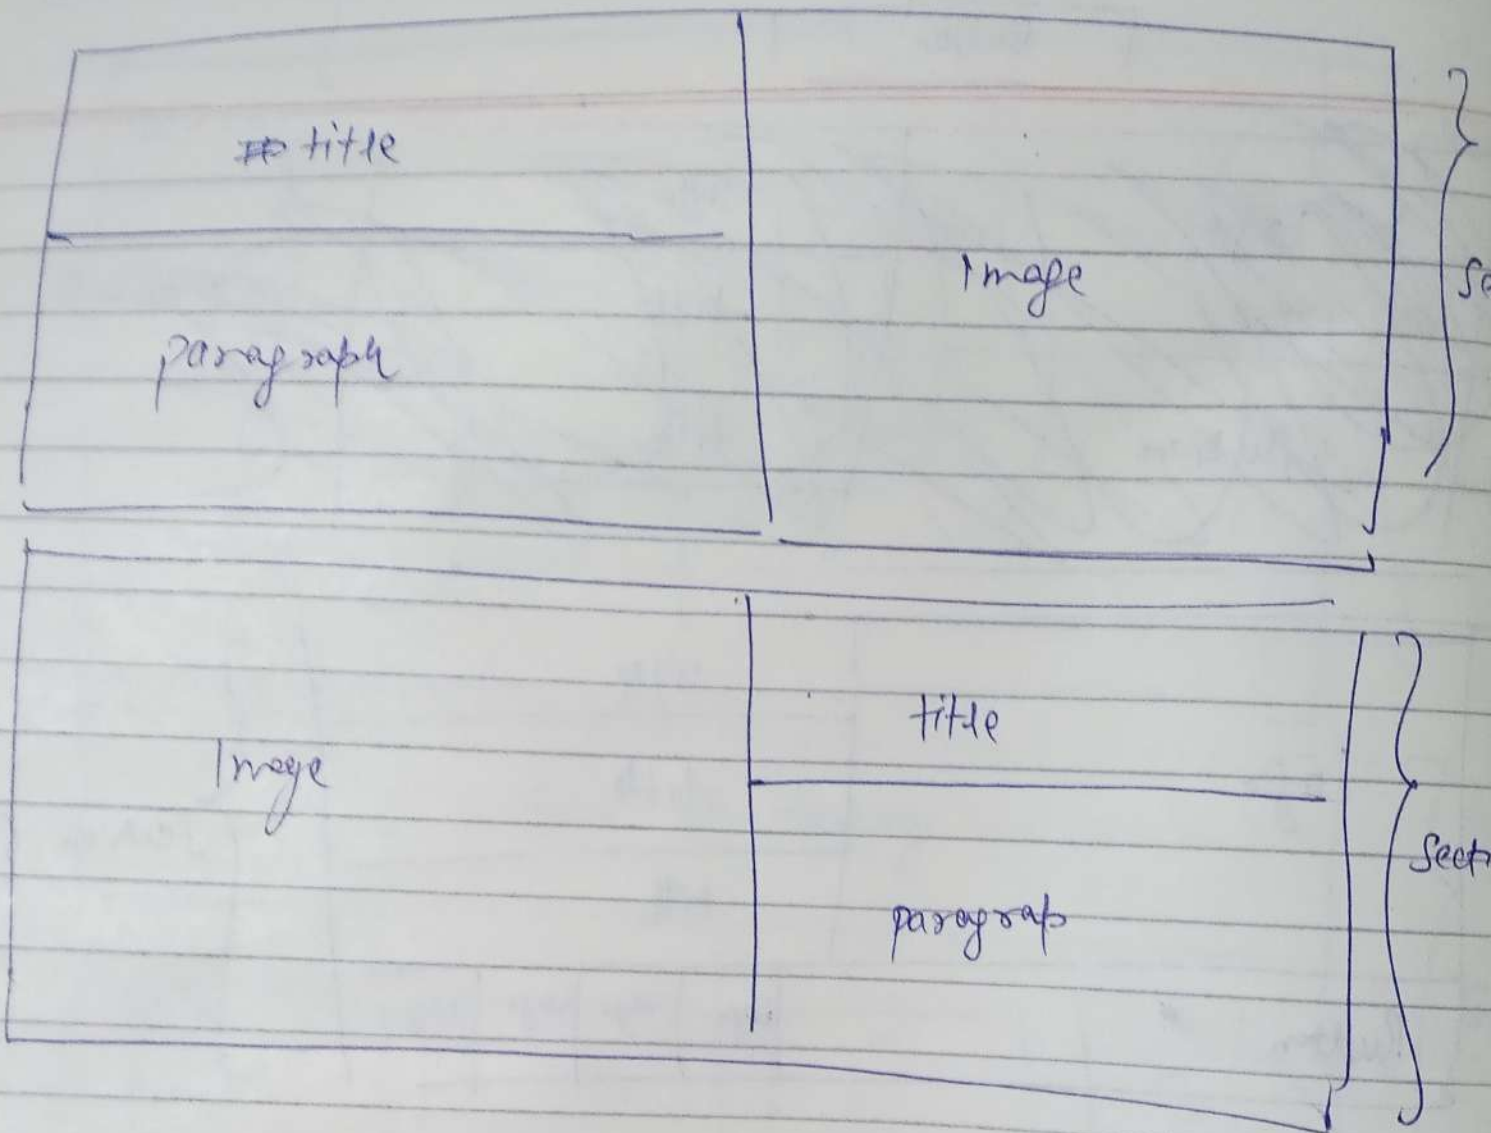 title
paragraph
Image
Se
Image
title
paragrap
Sect